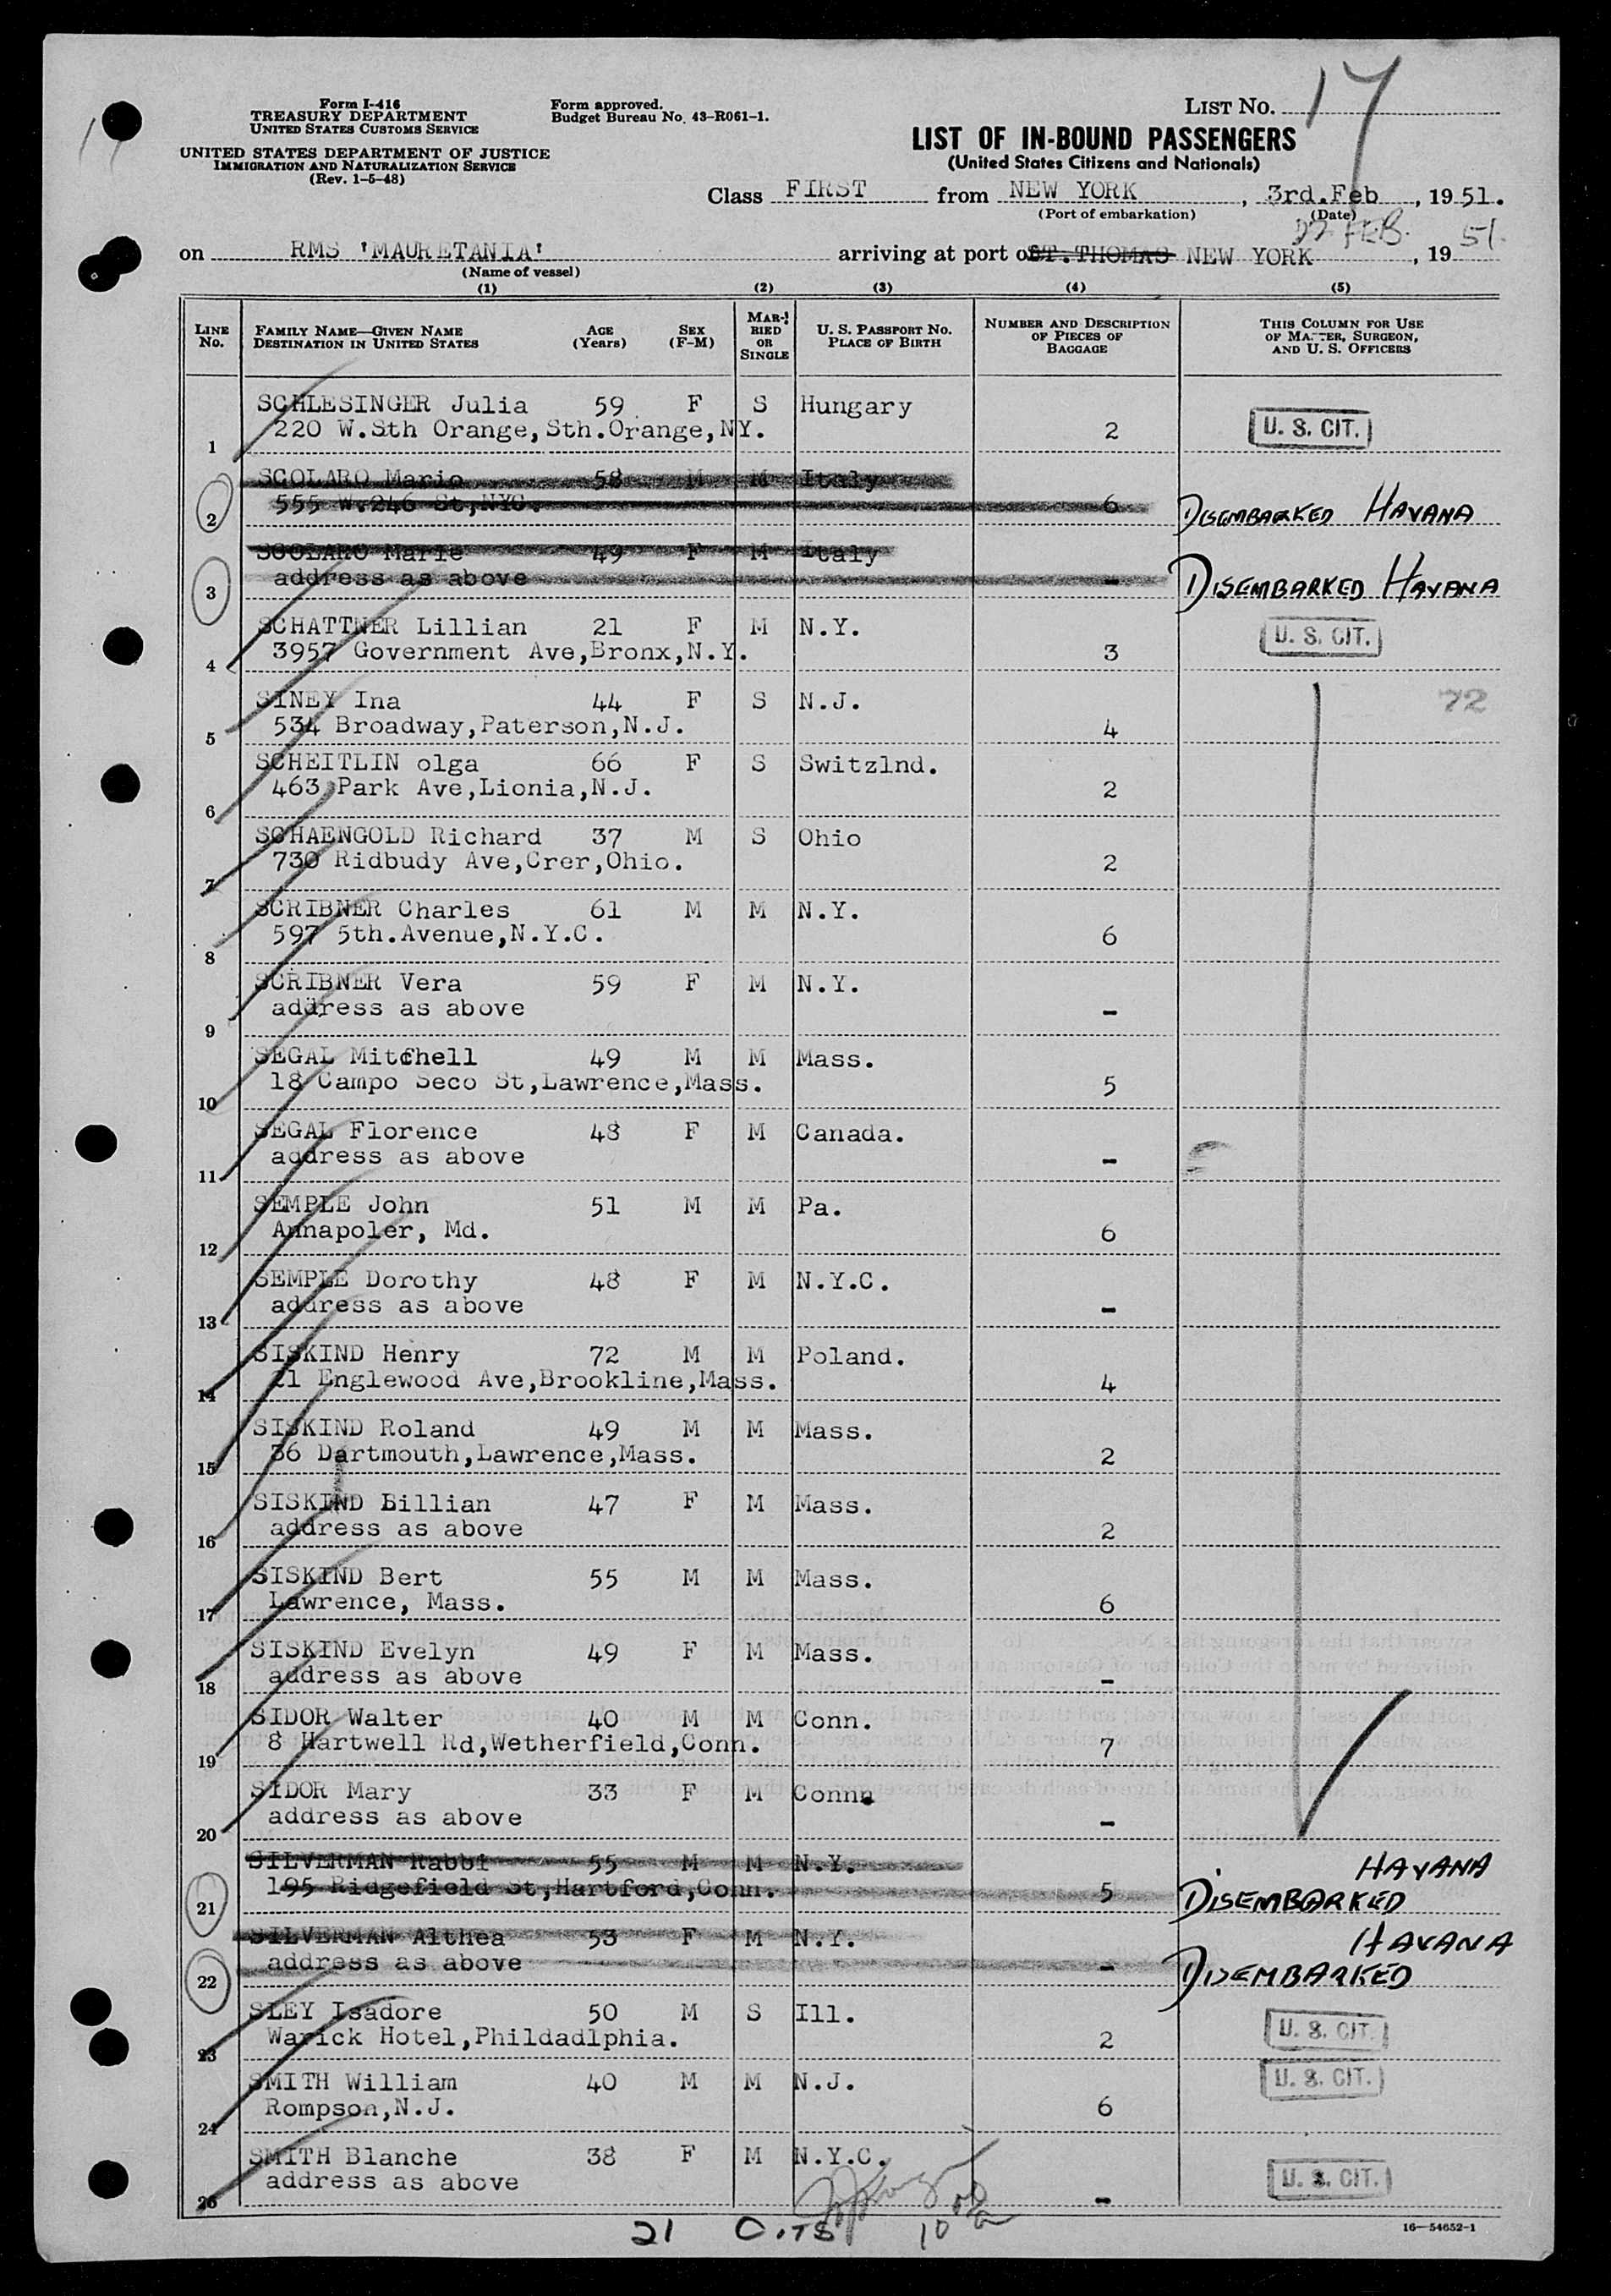 Form I-416
TREASURY DEPARTMENT
UNITED STATES CUSTOMS SERVICE
UNITED STATES DEPARTMENT OF JUSTICE
IMMIGRATION AND NATURALIZATION SERVICE
(Rev. 1-5-48)
Form approved.
Budget Bureau No. 43-R061-1.
LIST NO. 17
LIST OF IN-BOUND PASSENGERS
(United States Citizens and Nationals)
Class FIRST from NEW YORK, 3rd.Feb, 1951.
(Port of embarkation) (Date)
22 FEB. 51.
on RMS 'MAURETANIA' arriving at port of ST.THOMAS NEW YORK, 19
(Name of vessel)
(1) (2) (3) (4) (5)
LINE NO. FAMILY NAME—GIVEN NAME DESTINATION IN UNITED STATES AGE (Years) SEX (F-M) MARRIED OR SINGLE U. S. PASSPORT NO. PLACE OF BIRTH NUMBER AND DESCRIPTION OF PIECES OF BAGGAGE THIS COLUMN FOR USE OF MASTER, SURGEON, AND U. S. OFFICERS
SCHLESINGER Julia 59 F S Hungary
1 220 W.Sth Orange,Sth.Orange,NY. 2 U. S. CIT.
SCOLARO Mario 58 M M Italy
2 555 W.246 St,NYC. 6 DISEMBARKED HAVANA
SCOLARO Marie 49 F M Italy
3 address as above - DISEMBARKED HAVANA
SCHATTNER Lillian 21 F M N.Y. U. S. CIT.
4 3957 Government Ave,Bronx,N.Y. 3
SINEY Ina 44 F S N.J. 72
5 534 Broadway,Paterson,N.J. 4
SCHEITLIN olga 66 F S Switzlnd.
6 463 Park Ave,Lionia,N.J. 2
SCHAENGOLD Richard 37 M S Ohio
7 730 Ridbudy Ave,Crer,Ohio. 2
SCRIBNER Charles 61 M M N.Y.
8 597 5th.Avenue,N.Y.C. 6
SCRIBNER Vera 59 F M N.Y.
9 address as above -
SEGAL Mitchell 49 M M Mass.
10 18 Campo Seco St,Lawrence,Mass. 5
SEGAL Florence 48 F M Canada.
11 address as above -
SEMPLE John 51 M M Pa.
12 Annapoler, Md. 6
SEMPLE Dorothy 48 F M N.Y.C.
13 address as above -
SISKIND Henry 72 M M Poland.
14 21 Englewood Ave,Brookline,Mass. 4
SISKIND Roland 49 M M Mass.
15 36 Dartmouth,Lawrence,Mass. 2
SISKIND Lillian 47 F M Mass.
16 address as above 2
SISKIND Bert 55 M M Mass.
17 Lawrence, Mass. 6
SISKIND Evelyn 49 F M Mass.
18 address as above -
SIDOR Walter 40 M M Conn.
19 8 Hartwell Rd,Wetherfield,Conn. 7
SIDOR Mary 33 F M Conn.
20 address as above -
SILVERMAN Rabbi 55 M M N.Y. HAVANA
21 195 Ridgefield St,Hartford,Conn. 5 DISEMBARKED
SILVERMAN Althea 53 F M N.Y. HAVANA
22 address as above - DISEMBARKED
SLEY Isadore 50 M S Ill. U. S. CIT.
23 Warick Hotel,Phildadlphia. 2
SMITH William 40 M M N.J. U. S. CIT.
24 Rompson,N.J. 6
SMITH Blanche 38 F M N.Y.C. U. S. CIT.
25 address as above -
21 C.TS 10
16—54652-1